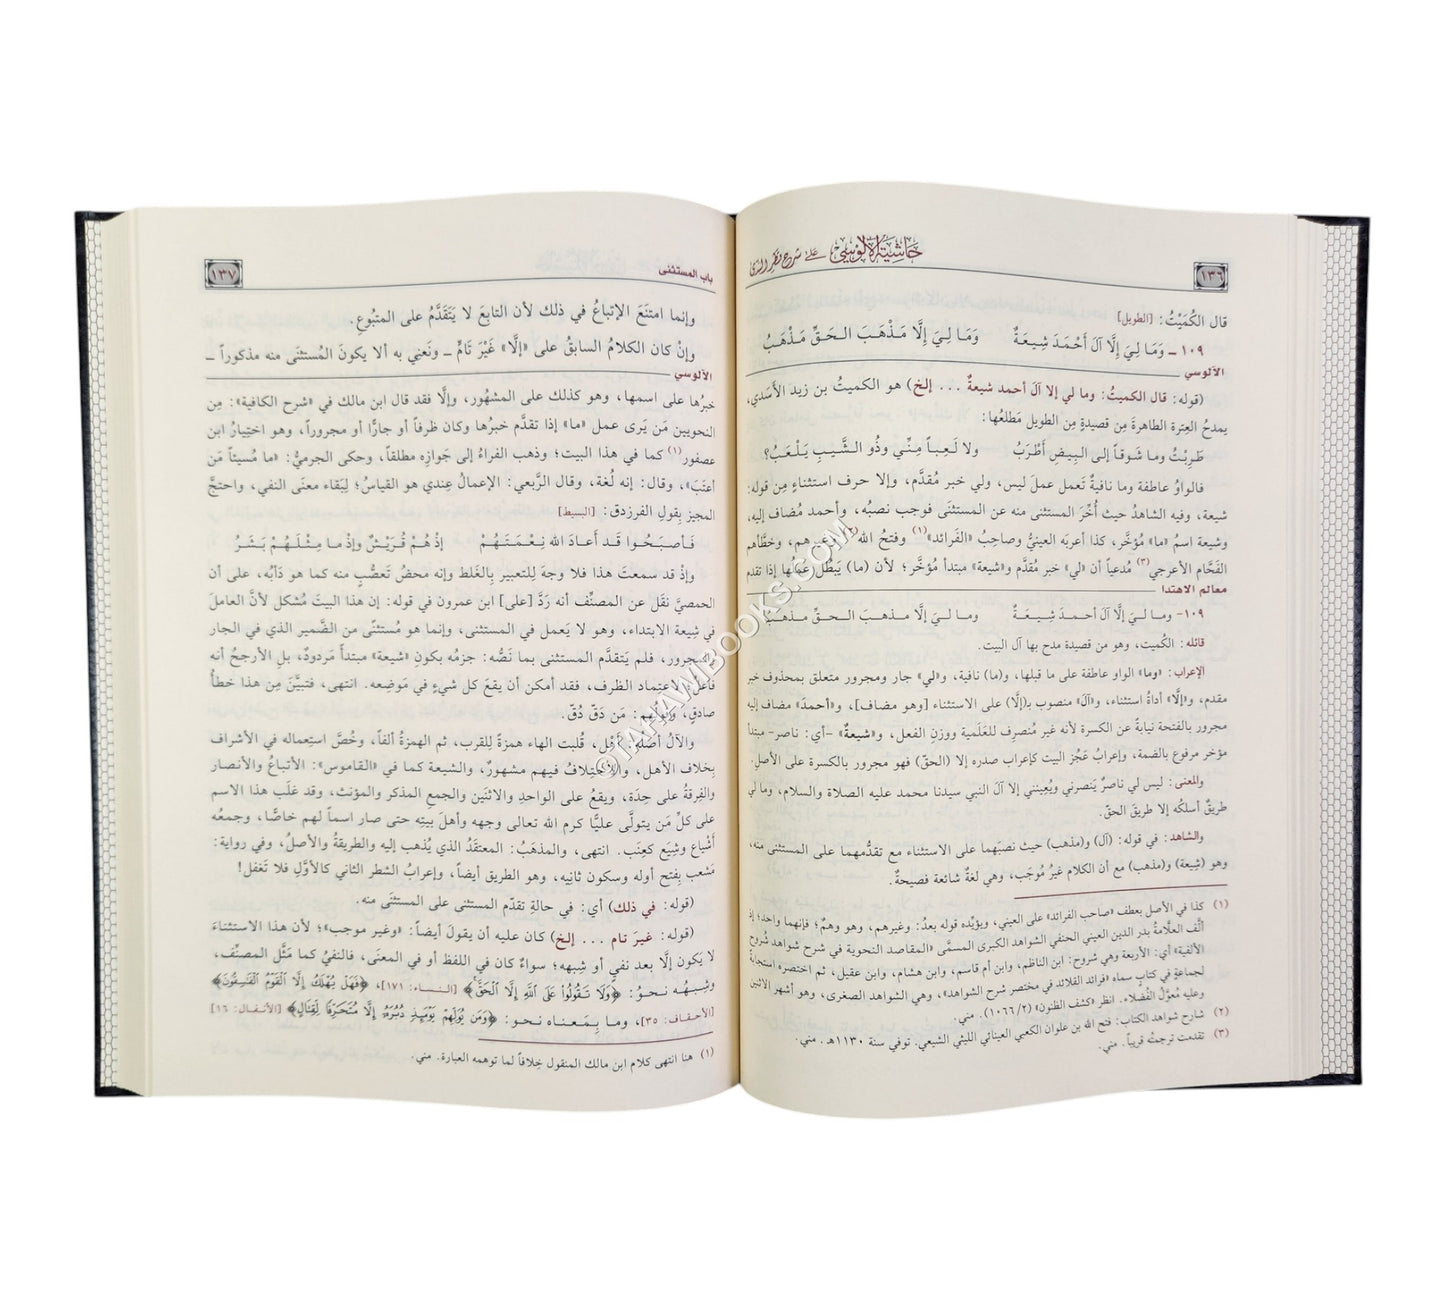 ١٣٦
حاشية الآلوسي على شرح قطر الندى
قال الكُمَيْتُ: [الطويل]
١٠٩ ـ وَمَا لِيَ إِلَّا آلَ أَحْمَدَ شِيعَةٌ وَمَا لِيَ إِلَّا مَذْهَبَ الحَقِّ مَذْهَبُ
الآلوسي
(قوله: قال الكميتُ: وما لي إلا آلَ أحمد شيعةٌ ... إلخ) هو الكميتُ بن زيد الأسَدي،
يمدحُ العِترة الطاهرةَ مِن قصيدةٍ مِن الطويل مَطلعُها:
طَرِبْتُ وما شَوقاً إلى البِيضِ أَطْرَبُ ولا لَعِباً مِنِّي وذُو الشَّيبِ يَلْعَبُ؟
فالواوُ عاطفة وما نافيةٌ تَعمل عملَ ليس، ولي خبر مُقدَّم، وإلا حرف استثناءٍ مِن قوله:
شيعة، وفيه الشاهدُ حيث أُخِّرَ المستثنى منه عن المستثنَى فوجب نصبُه، وأحمد مُضاف إليه،
وشيعة اسمُ «ما» مُؤخَّر، كذا أعربَه العينيُّ وصاحِبُ «الفَرائد»(١) وفتحُ الله(٢) وغيرهم، وخطَّأهم
الفَحَّام الأعرجي(٣) مُدعياً أن «لي» خبر مُقدَّم و«شيعة» مبتدأ مُؤخَّر؛ لأن (ما) يَبطُل عَمَلُها إذا تقدم
معالم الاهتدا
١٠٩- وما لِيَ إلَّا آلَ أحمدَ شِيعَةٌ وما لِيَ إلَّا مذهبَ الحقِّ مذهبُ
قائله: الكُميت، وهو من قصيدة مدح بها آل البيت.
الإعراب: «وما» الواو عاطفة على ما قبلها، و(ما) نافية، و«لي» جار ومجرور متعلق بمحذوف خبر
مقدم، و«إلَّا» أداةُ استثناء، و«آلَ» منصوب بـ(إلَّا) على الاستثناء [وهو مضاف]، و«أحمدَ» مضاف إليه
مجرور بالفتحة نيابةً عن الكسرة لأنه غير مُنصرِف للعَلَمية ووزنِ الفعل، و«شيعةٌ» -أي: ناصر- مبتدأ
مؤخر مرفوع بالضمة، وإعرابُ عَجُز البيت كإعراب صدره إلا (الحق) فهو مجرور بالكسرة على الأصلِ.
والمعنى: ليس لي ناصرٌ يَنصرني ويُعِينني إلا آلَ النبي سيدنا محمد عليه الصلاة والسلام، وما لي
طريقٌ أسلكُه إلا طريقَ الحقّ.
والشاهد: في قوله: (آل) و(مذهب) حيث نصبَهما على الاستثناء مع تقدُّمهما على المستثنى منه،
وهو (شِيعة) و(مذهب) مع أن الكلام غيرُ مُوجَب، وهي لغةٌ شائعة فصيحةٌ.
(١) كذا في الأصل بعطف «صاحب الفرائد» على العيني، ويؤيِّده قوله بعدُ: وغيرهم، وهو وهمٌ؛ فإنهما واحد؛ إذ
ألَّف العلَّامةُ بدر الدين العيني الحنفي الشواهد الكبرى المسمَّى «المقاصد النحوية في شرح شواهد شُروح
الألفية» أي: الأربعة وهي شروح: ابن الناظم، وابن أم قاسم، وابن هشام، وابن عقيل، ثم اختصره استجابةً
لجماعةٍ في كتابٍ سماه «فرائد القلائد في مختصر شرح الشواهد»، وهي الشواهد الصغرى، وهو أشهر الاثنين
وعليه مُعوَّلُ الفُضلاء. انظر «كشف الظنون» (٢/ ١٠٦٦). مني.
(٢) شارح شواهد الكتاب: فتح الله بن علوان الكعبي العينائي الليثي الشيعي. توفي سنة ١١٣٠هـ. مني.
(٣) تقدمت ترجمتُه قريباً. مني.
باب المستثنى
١٣٧
وإنما امتنَعَ الإتباعُ في ذلك لأن التابعَ لا يَتَقَدَّمُ على المتبُوعِ.
وإنْ كان الكلامُ السابقُ على «إلَّا» غَيْرَ تَامٍّ ـ ونَعني به ألا يكونَ المُستثنَى منه مذكوراً ـ
الآلوسي
خبرُها على اسمها، وهو كذلك على المشهُور، وإلَّا فقد قال ابن مالك في «شرح الكافية»: مِن
النحويين مَن يَرى عمل «ما» إذا تقدَّم خبرُها وكان ظرفاً أو جارًّا أو مجروراً، وهو اختِيارُ ابن
عصفور(١) كما في هذا البيت؛ وذهب الفراءُ إلى جَوازِه مطلقاً، وحكى الجرميُّ: «ما مُسيئاً مَن
أعتَبَ»، وقال: إنه لُغة، وقال الرَّبعي: الإعمالُ عِندي هو القياسُ؛ لِبَقاء معنَى النفي، واحتجَّ
المجيز بِقولِ الفرزدق: [البسيط]
فَأصبَحُوا قَد أعَادَ الله نِعْمَتَهُمْ إذْ هُمْ قُرَيْشٌ وإذْ ما مِثْلَهُمْ بَشَرُ
وإذْ قد سمعتَ هذا فلا وجهَ لِلتعبير بِالغَلط وإنه محضُ تَعصُّب منه كما هو دَأبُه، على أن
الحمصيَّ نقَل عن المصنِّف أنه رَدَّ [على] ابن عمرون في قوله: إن هذا البيتَ مُشكل لأنَّ العاملَ
في شِيعة الابتداء، وهو لا يَعمل في المستثنى، وإنما هو مُستثنًى من الضَّمير الذي في الجار
والمجرور، فلم يَتقدَّم المستثنى بما نَصُّه: جزمُه بكونِ «شيعة» مبتدأ مَردودٌ، بلِ الأرجحُ أنه
فاعل لاعتماد الظرف، فقد أمكن أن يقعَ كل شيءٍ في مَوضِعه. انتهى، فتبيَّن مِن هذا خطأُ
صادقٍ، وقولُهم: مَن دَقَّ دُقّ.
والآلُ أصله: أَهْل، قُلبت الهاء همزةً لِلقرب، ثم الهمزةُ ألفاً، وخُصَّ استعماله في الأشراف
بِخلاف الأهل، والاختِلافُ فيهم مشهورٌ، والشيعة كما في «القاموس»: الأتباعُ والأنصار
والفِرقةُ على حِدَة، ويقعُ على الواحدِ والاثنَين والجمعِ المذكر والمؤنث، وقد غلَب هذا الاسم
على كلِّ مَن يتولَّى عليًّا كرم الله تعالى وجهه وأهلَ بيتِه حتى صار اسماً لهم خاصًّا، وجمعُه
أشْياع وشِيَع كعِنَب. انتهى، والمذهَبُ: المعتقَدُ الذي يُذهب إليه والطريقةُ والأصلُ، وفي رواية:
مَشعب بِفتح أوله وسكون ثانِيه، وهو الطريق أيضاً، وإعرابُ الشطر الثاني كالأوَّلِ فلا تَغفل!
(قوله: في ذلك) أي: في حالةِ تقدّم المستثنى على المستثنَى منه.
(قوله: غيرَ تام ... إلخ) كان عليه أن يقولَ أيضاً: «وغير موجب»؛ لأن هذا الاستثناءَ
لا يَكون إلَّا بعد نفيٍ أو شِبهه؛ سواءٌ كان في اللفظ أو في المعنى، فالنفيُ كما مَثَّل المصنِّف،
وشِبهُه نحوُ: ﴿وَلَا تَقُولُوا عَلَى اللَّهِ إِلَّا الْحَقَّ﴾ [النساء: ١٧١]، ﴿فَهَلْ يُهْلَكُ إِلَّا الْقَوْمُ الْفَاسِقُونَ﴾
[الأحقاف: ٣٥]، وما بِمَعناه نحو: ﴿وَمَن يُوَلِّهِمْ يَوْمَئِذٍ دُبُرَهُ إِلَّا مُتَحَرِّفًا لِقِتَالٍ﴾ [الأنفال: ١٦]
(١) هنا انتهى كلام ابن مالك المنقول خِلافاً لما توهمه العبارة. مني.
©TAHAWIBOOKS.COM